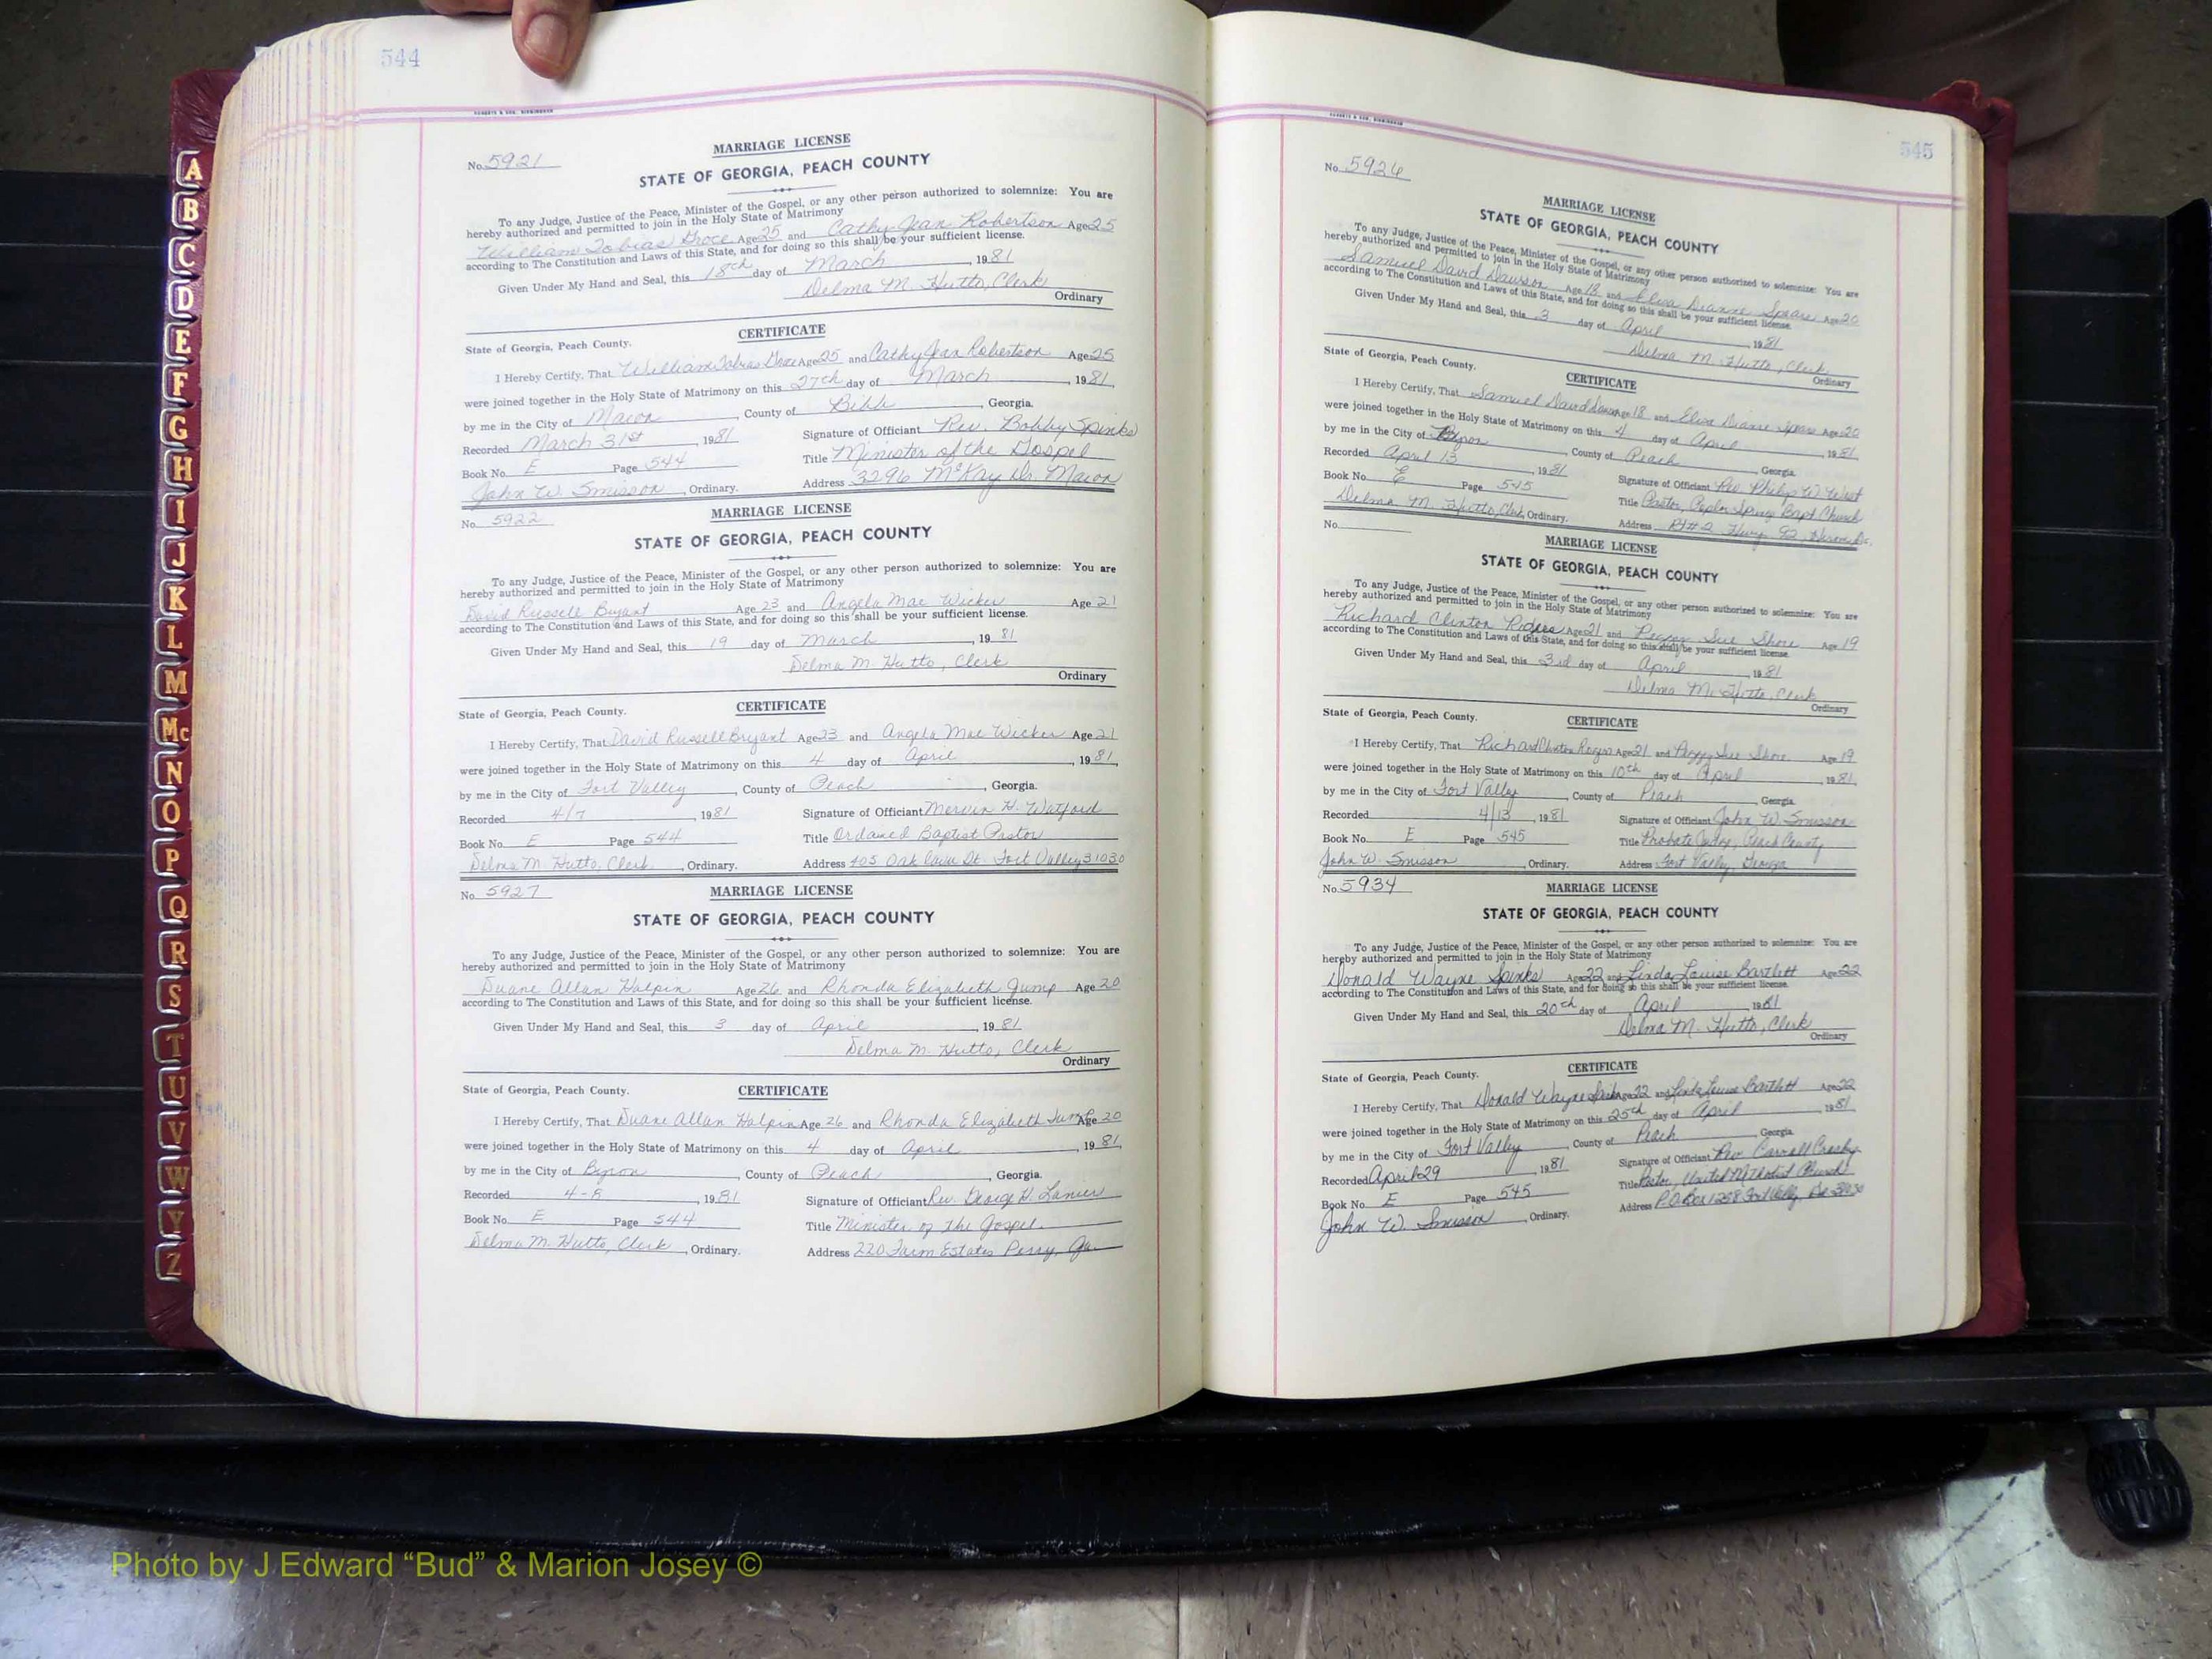 544
ROBERTS & SON, BIRMINGHAM
MARRIAGE LICENSE
No. 5921
STATE OF GEORGIA, PEACH COUNTY
To any Judge, Justice of the Peace, Minister of the Gospel, or any other person authorized to solemnize: You are
hereby authorized and permitted to join in the Holy State of Matrimony
William Tobias Groce Age 25 and Cathy Jean Robertson Age 25
according to The Constitution and Laws of this State, and for doing so this shall be your sufficient license.
Given Under My Hand and Seal, this 18th day of March, 1981
Delma M. Hutto, Clerk
Ordinary
CERTIFICATE
State of Georgia, Peach County.
I Hereby Certify, That William Tobias Groce Age 25 and Cathy Jean Robertson Age 25
were joined together in the Holy State of Matrimony on this 27th day of March, 1981,
by me in the City of Macon, County of Bibb, Georgia.
Recorded March 31st, 1981 Signature of Officiant Rev. Bobby Spinks
Book No. E Page 544 Title Minister of the Gospel
John W. Smisson, Ordinary. Address 3296 McKay Dr. Macon
No. 5922
MARRIAGE LICENSE
STATE OF GEORGIA, PEACH COUNTY
To any Judge, Justice of the Peace, Minister of the Gospel, or any other person authorized to solemnize: You are
hereby authorized and permitted to join in the Holy State of Matrimony
David Russell Bryant Age 23 and Angela Mae Wicker Age 21
according to The Constitution and Laws of this State, and for doing so this shall be your sufficient license.
Given Under My Hand and Seal, this 19 day of March, 1981
Delma M. Hutto, Clerk
Ordinary
CERTIFICATE
State of Georgia, Peach County.
I Hereby Certify, That David Russell Bryant Age 23 and Angela Mae Wicker Age 21
were joined together in the Holy State of Matrimony on this 4 day of April, 1981,
by me in the City of Fort Valley, County of Peach, Georgia.
Recorded 4/7, 1981 Signature of Officiant Mervin H. Watford
Book No. E Page 544 Title Ordained Baptist Pastor
Delma M. Hutto, Clerk, Ordinary. Address 405 Oak Lawn St. Fort Valley 31030
No. 5927
MARRIAGE LICENSE
STATE OF GEORGIA, PEACH COUNTY
To any Judge, Justice of the Peace, Minister of the Gospel, or any other person authorized to solemnize: You are
hereby authorized and permitted to join in the Holy State of Matrimony
Duane Allan Halpin Age 26 and Rhonda Elizabeth Jump Age 20
according to The Constitution and Laws of this State, and for doing so this shall be your sufficient license.
Given Under My Hand and Seal, this 3 day of April, 1981
Delma M. Hutto, Clerk
Ordinary
State of Georgia, Peach County. CERTIFICATE
I Hereby Certify, That Duane Allan Halpin Age 26 and Rhonda Elizabeth Jump Age 20
were joined together in the Holy State of Matrimony on this 4 day of April, 1981,
by me in the City of Byron, County of Peach, Georgia.
Recorded 4-8, 1981 Signature of Officiant Rev. George H. Lanier
Book No. E Page 544 Title Minister of the Gospel
Delma M. Hutto, Clerk, Ordinary. Address 220 Farm Estates Perry, Ga
545
ROBERTS & SON, BIRMINGHAM
No. 5926
MARRIAGE LICENSE
STATE OF GEORGIA, PEACH COUNTY
To any Judge, Justice of the Peace, Minister of the Gospel, or any other person authorized to solemnize: You are
hereby authorized and permitted to join in the Holy State of Matrimony
Samuel David Dawson Age 18 and Elisa Dianne Spears Age 20
according to The Constitution and Laws of this State, and for doing so this shall be your sufficient license.
Given Under My Hand and Seal, this 3 day of April, 1981
Delma M. Hutto, Clerk
Ordinary
State of Georgia, Peach County.
CERTIFICATE
I Hereby Certify, That Samuel David Dawson Age 18 and Elisa Dianne Spears Age 20
were joined together in the Holy State of Matrimony on this 4 day of April, 1981,
by me in the City of Byron, County of Peach, Georgia.
Recorded April 13, 1981 Signature of Officiant Rev. Philip W. West
Book No. E Page 545 Title Pastor, Poplar Spring Bapt Church
Delma M. Hutto, Clerk, Ordinary. Address Rt # 2 Hwy
No.
MARRIAGE LICENSE
STATE OF GEORGIA, PEACH COUNTY
To any Judge, Justice of the Peace, Minister of the Gospel, or any other person authorized to solemnize: You are
hereby authorized and permitted to join in the Holy State of Matrimony
Richard Clinton Age 21 and Peggy Sue Shore Age 19
according to The Constitution and Laws of this State, and for doing so this shall be your sufficient license.
Given Under My Hand and Seal, this 3rd day of April, 1981
Delma M. Hutto, Clerk
Ordinary
State of Georgia, Peach County. CERTIFICATE
I Hereby Certify, That Richard Clinton Rogers Age 21 and Peggy Sue Shore Age 19
were joined together in the Holy State of Matrimony on this 10th day of April, 1981,
by me in the City of Fort Valley, County of Peach, Georgia.
Recorded 4/13, 1981 Signature of Officiant John W. Smisson
Book No. E Page 545 Title Probate Judge, Peach County
John W. Smisson, Ordinary. Address Fort Valley, Georgia
No. 5934
MARRIAGE LICENSE
STATE OF GEORGIA, PEACH COUNTY
To any Judge, Justice of the Peace, Minister of the Gospel, or any other person authorized to solemnize: You are
hereby authorized and permitted to join in the Holy State of Matrimony
Donald Wayne Spinks Age 22 and Linda Louise Bartlett Age 22
according to The Constitution and Laws of this State, and for doing so this shall be your sufficient license.
Given Under My Hand and Seal, this 20th day of April, 1981
Delma M. Hutto, Clerk
Ordinary
State of Georgia, Peach County. CERTIFICATE
I Hereby Certify, That Donald Wayne Spinks Age 22 and Linda Louise Bartlett Age 22
were joined together in the Holy State of Matrimony on this 25th day of April, 1981,
by me in the City of Fort Valley, County of Peach, Georgia.
Recorded April 29, 1981 Signature of Officiant Rev. Carroll Crosby
Book No. E Page 545 Title Pastor, United Methodist Church
John W. Smisson, Ordinary. Address P.O. Box 1258 Fort Valley, Ga 31030
A
B
C
D
E
F
G
H
I
J
K
L
M
Mc
N
O
P
Q
R
S
T
U
V
W
Y
Z
Photo by J Edward “Bud” & Marion Josey ©